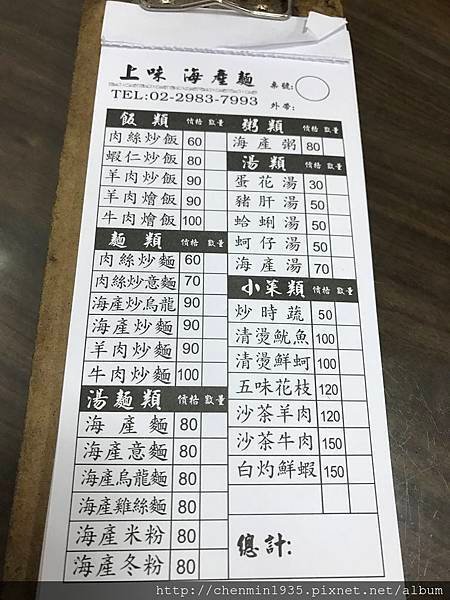 上味 海產麵
桌號:
TEL:02-2983-7993
外帶:
飯類 價格 數量
肉絲炒飯 60
蝦仁炒飯 80
羊肉炒飯 90
羊肉燴飯 90
牛肉燴飯 100
麵類 價格 數量
肉絲炒麵 60
肉絲炒意麵 70
海產炒烏龍 90
海產炒麵 90
羊肉炒麵 90
牛肉炒麵 100
湯麵類 價格 數量
海產麵 80
海產意麵 80
海產烏龍麵 80
海產雞絲麵 80
海產米粉 80
海產冬粉 80
粥類 價格 數量
海產粥 80
湯類 價格 數量
蛋花湯 30
豬肝湯 50
蛤蜊湯 50
蚵仔湯 50
海產湯 70
小菜類 價格 數量
炒時蔬 50
清燙魷魚 100
清燙鮮蚵 100
五味花枝 120
沙茶羊肉 120
沙茶牛肉 150
白灼鮮蝦 150
總計:
http://chenmin1935.pixnet.net/album